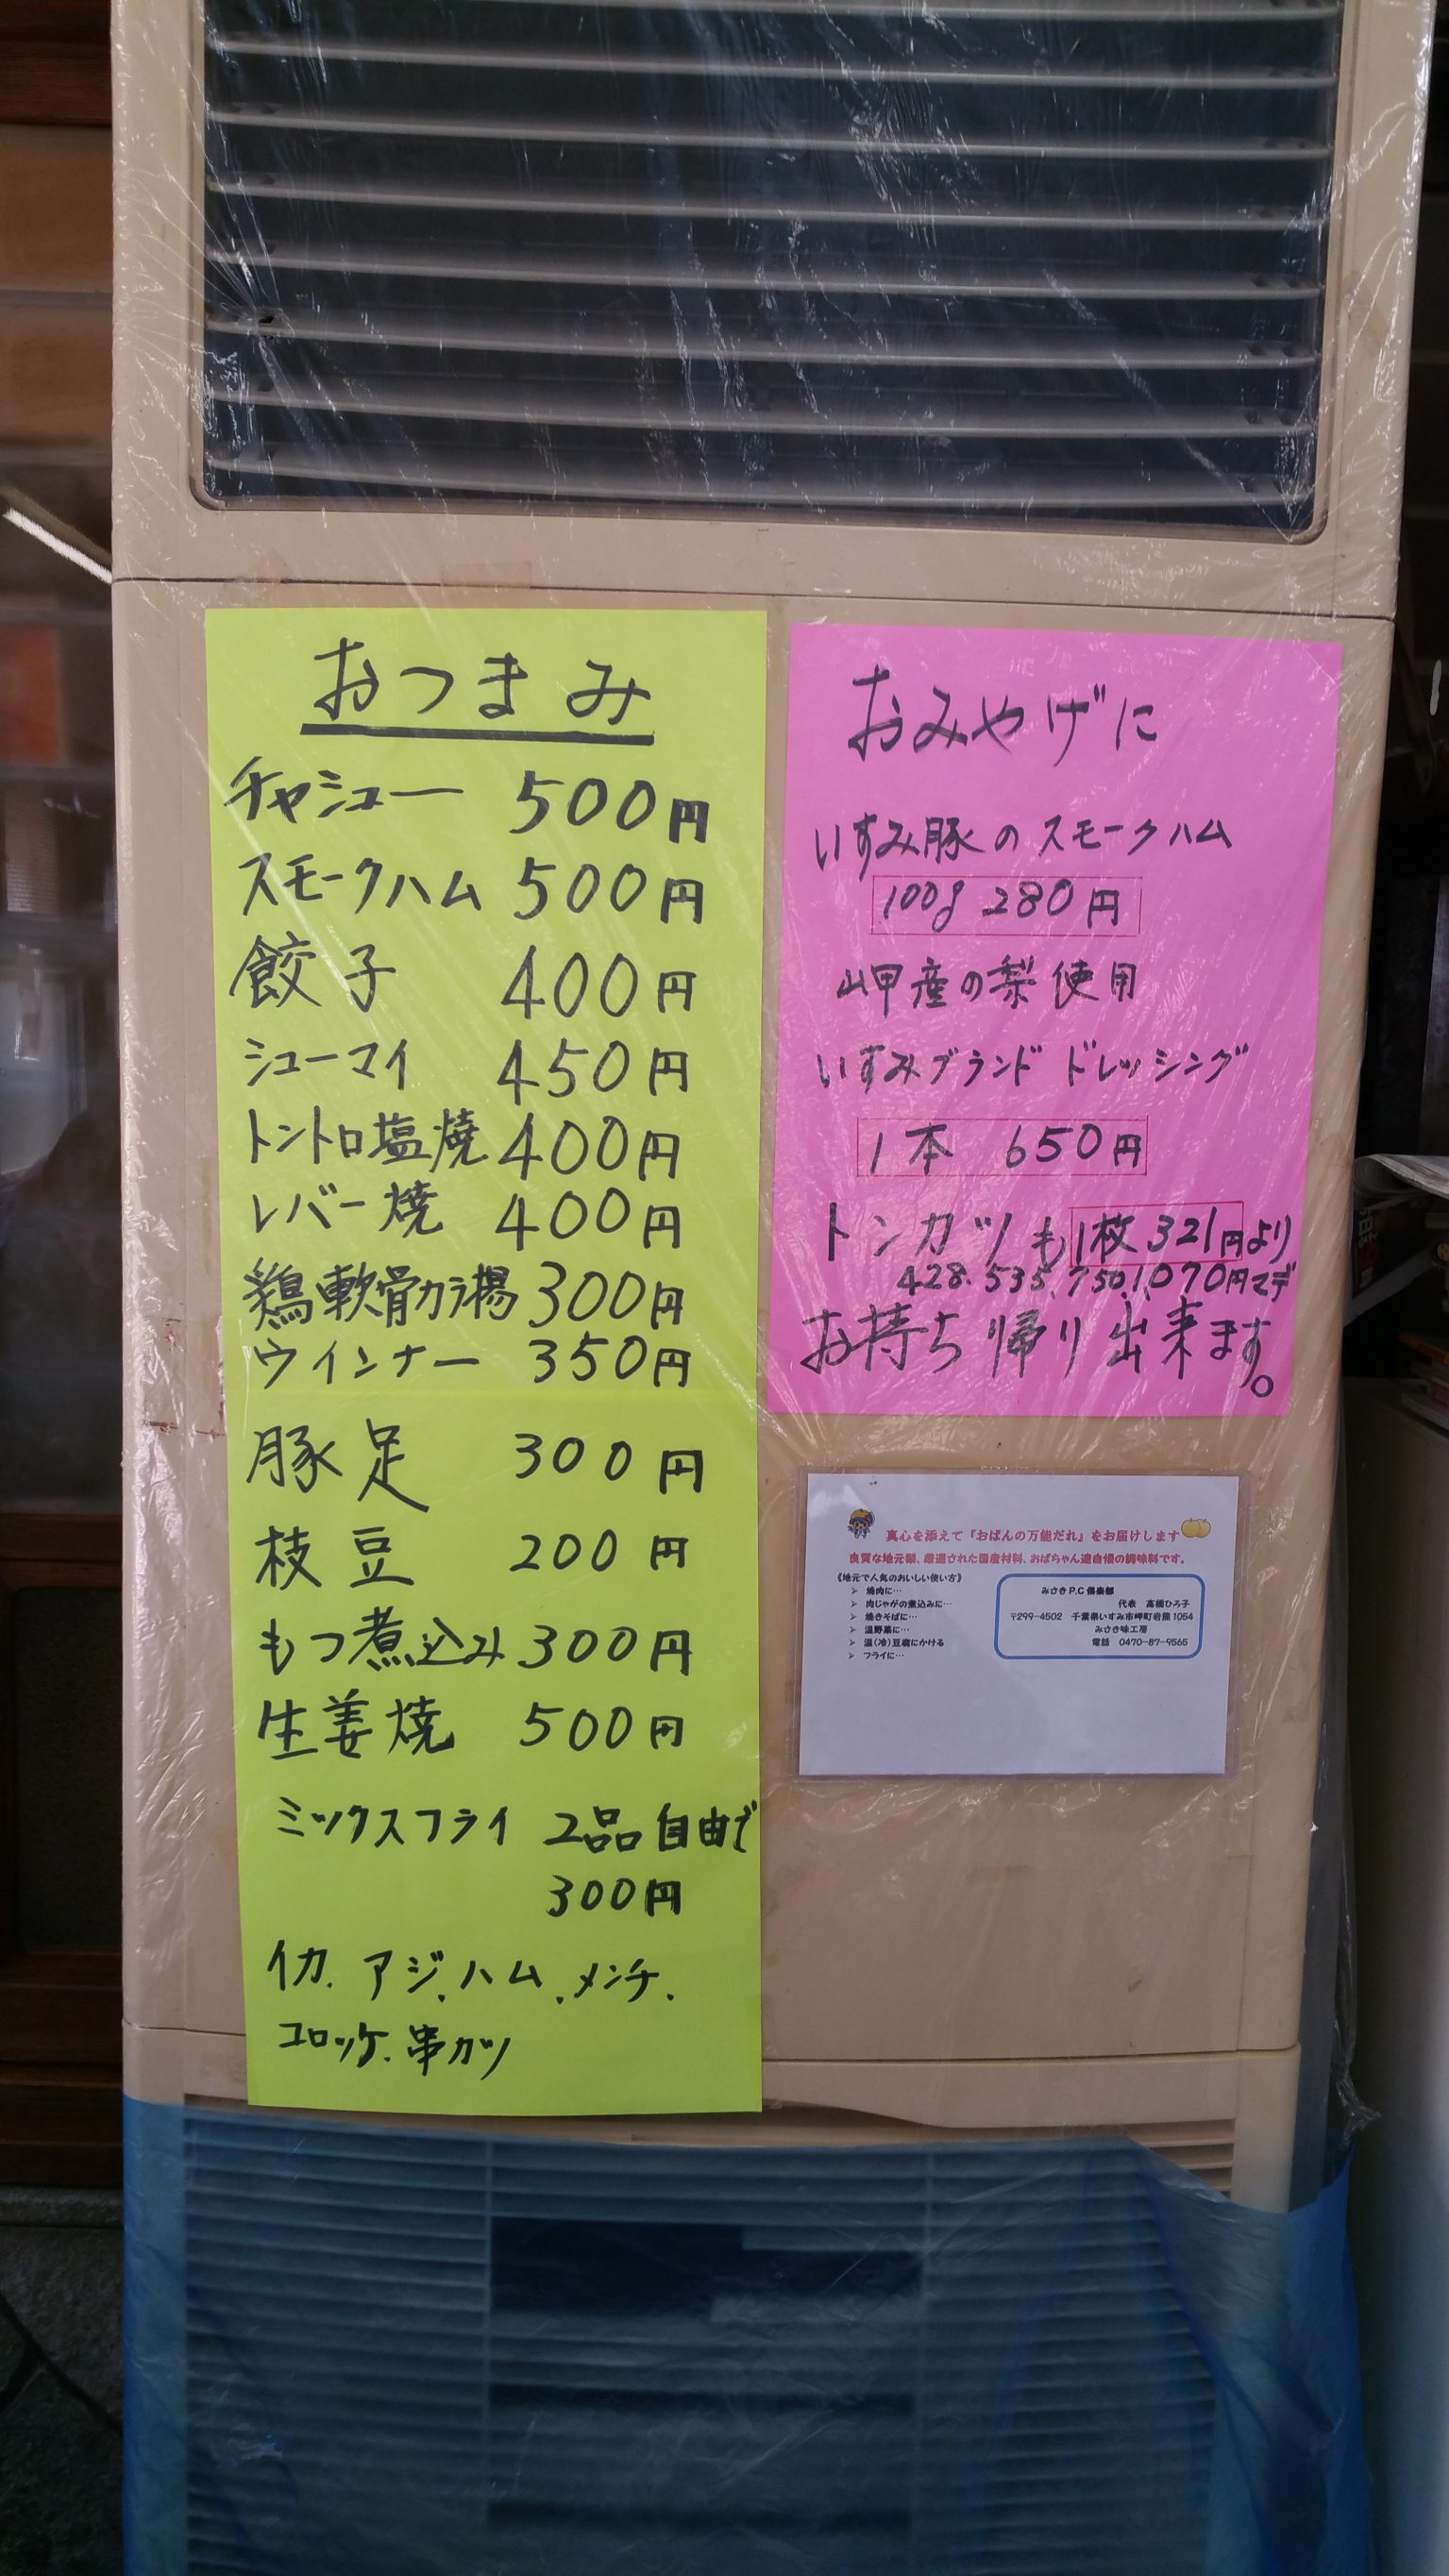 おつまみ
チャシュー 500円
スモークハム 500円
餃子 400円
シューマイ 450円
トントロ塩焼 400円
レバー焼 400円
鶏軟骨カラ揚 300円
ウインナー 350円
豚足 300円
枝豆 200円
もつ煮込み 300円
生姜焼 500円
ミックスフライ 2品自由で
300円
イカ.アジ.ハム.メンチ.
コロッケ.串カツ
おみやげに
いすみ豚のスモークハム
100g 280円
岬産の梨使用
いすみブランド ドレッシング
1本 650円
トンカツも1枚321円より
428.535.750.1,070円マデ
お持ち帰り出来ます。
真心を添えて『おばんの万能だれ』をお届けします
良質な地元梨、厳選された国産材料、おばちゃん達自慢の調味料です。
《地元で人気のおいしい使い方》
➢ 焼肉に…
➢ 肉じゃがの煮込みに…
➢ 焼きそばに…
➢ 温野菜に…
➢ 温(冷)豆腐にかける
➢ フライに…
みさきP.C倶楽部
代表 高橋ひろ子
〒299-4502 千葉県いすみ市岬町岩熊1054
みさき味工房
電話 0470-87-9565